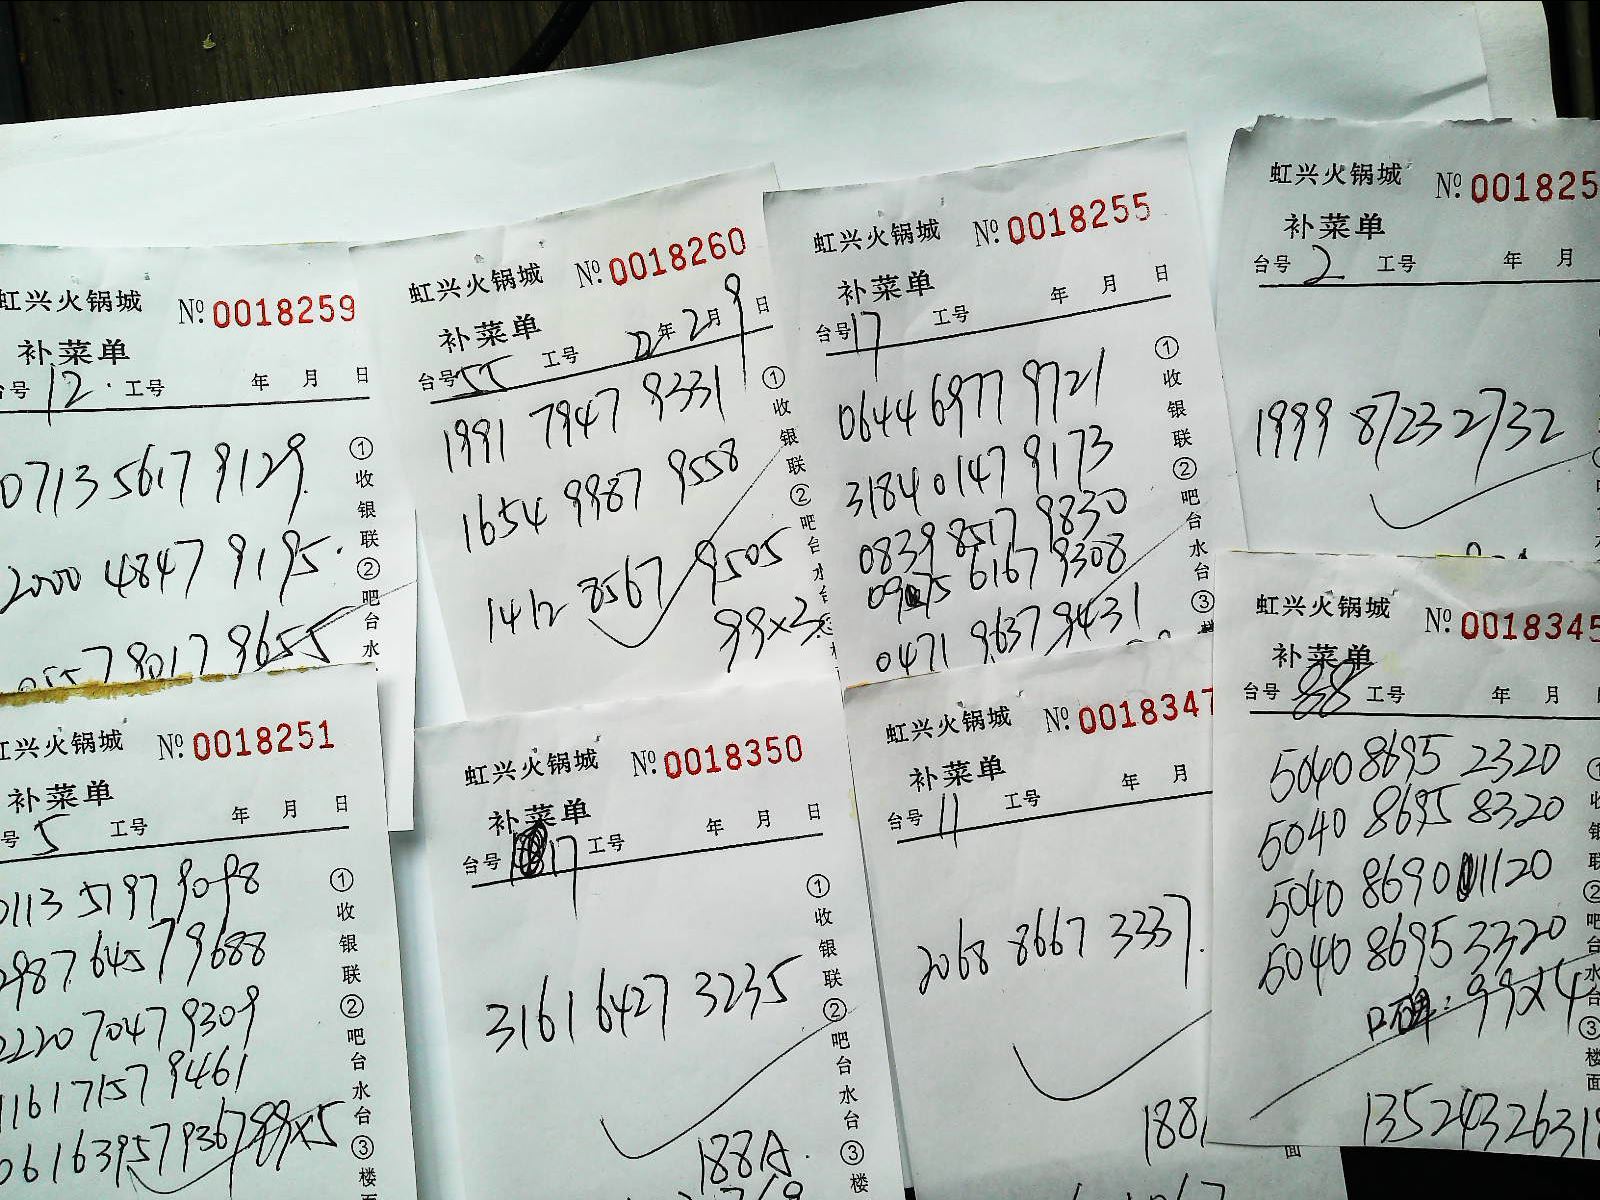 虹兴火锅城 №0018259
补菜单
台号 12 工号 年 月 日
0713 5617 9129
2000 4847 9195
0557 9017 9655
①收银联②吧台水
虹兴火锅城 №0018260
补菜单
台号 55 工号 22年2月9日
1991 7947 9331
1654 9987 9558
1412 8567 9505
99×3
①收银联②吧台水台
虹兴火锅城 №0018255
补菜单
台号 17 工号 年 月 日
0644 6977 9721
3184 0147 9173
0839 8517 9830
0975 6167 9308
0471 9637 9431
①收银联②吧台水台③楼
虹兴火锅城 №001825
补菜单
台号 2 工号 年 月
1999 8723 2732
虹兴火锅城 №0018251
补菜单
号 5 工号 年 月 日
0113 5197 9098
2987 6457 9688
2220 7047 9309
1161 7157 9461
0616 3957 9367 99×5
①收银联②吧台水台③楼面
虹兴火锅城 №0018350
补菜单
台号 17 工号 年 月 日
3161 6427 3235
188A.
①收银联②吧台水台③楼
虹兴火锅城 №0018347
补菜单
台号 11 工号 年 月
2068 8667 3337.
188
面
虹兴火锅城 №0018345
补菜单
台号 88 工号 年 月 日
5040 8695 2320
5040 8695 8320
5040 8690 1120
5040 8695 3320
口碑: 99×4
1352432631
①收银联②吧台水台③楼面